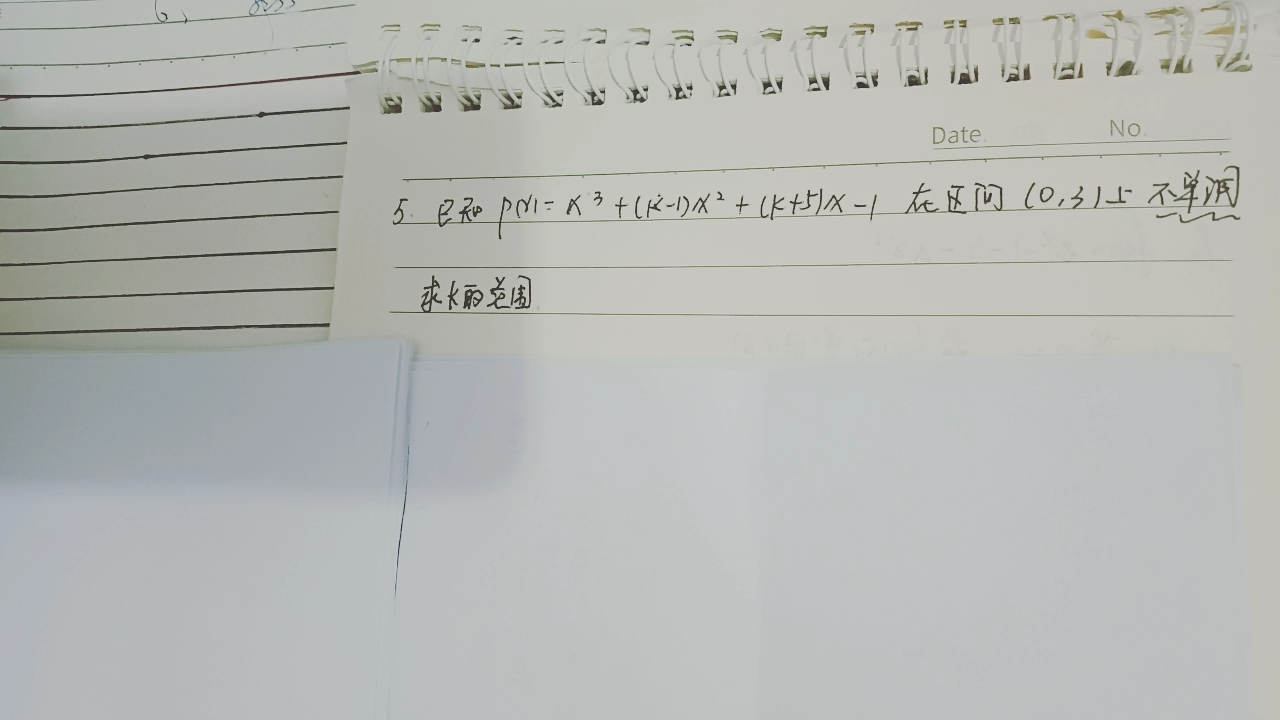 Date. No.
5. 已知 p(x)= x³+(k-1)x²+(k+5)x-1 在区间 (0,3)上 不单调
求k的范围